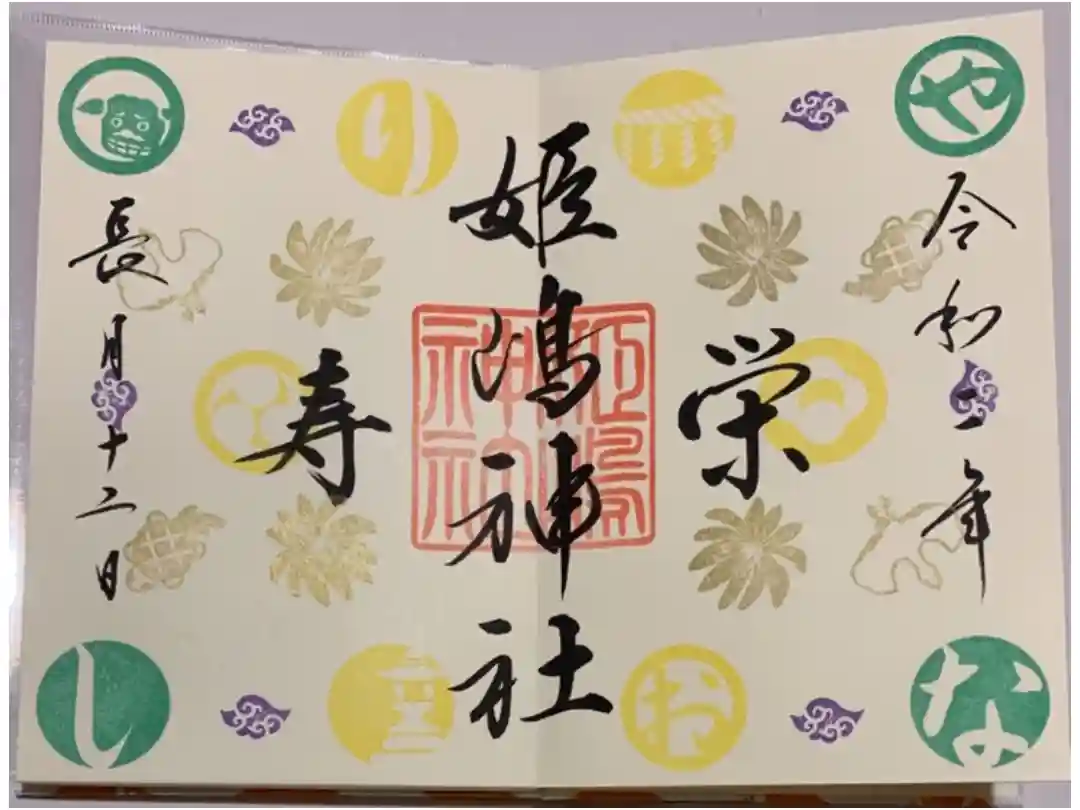 や
令和二年
な
栄
お
姫嶋神社
り
寿
長月十二日
し